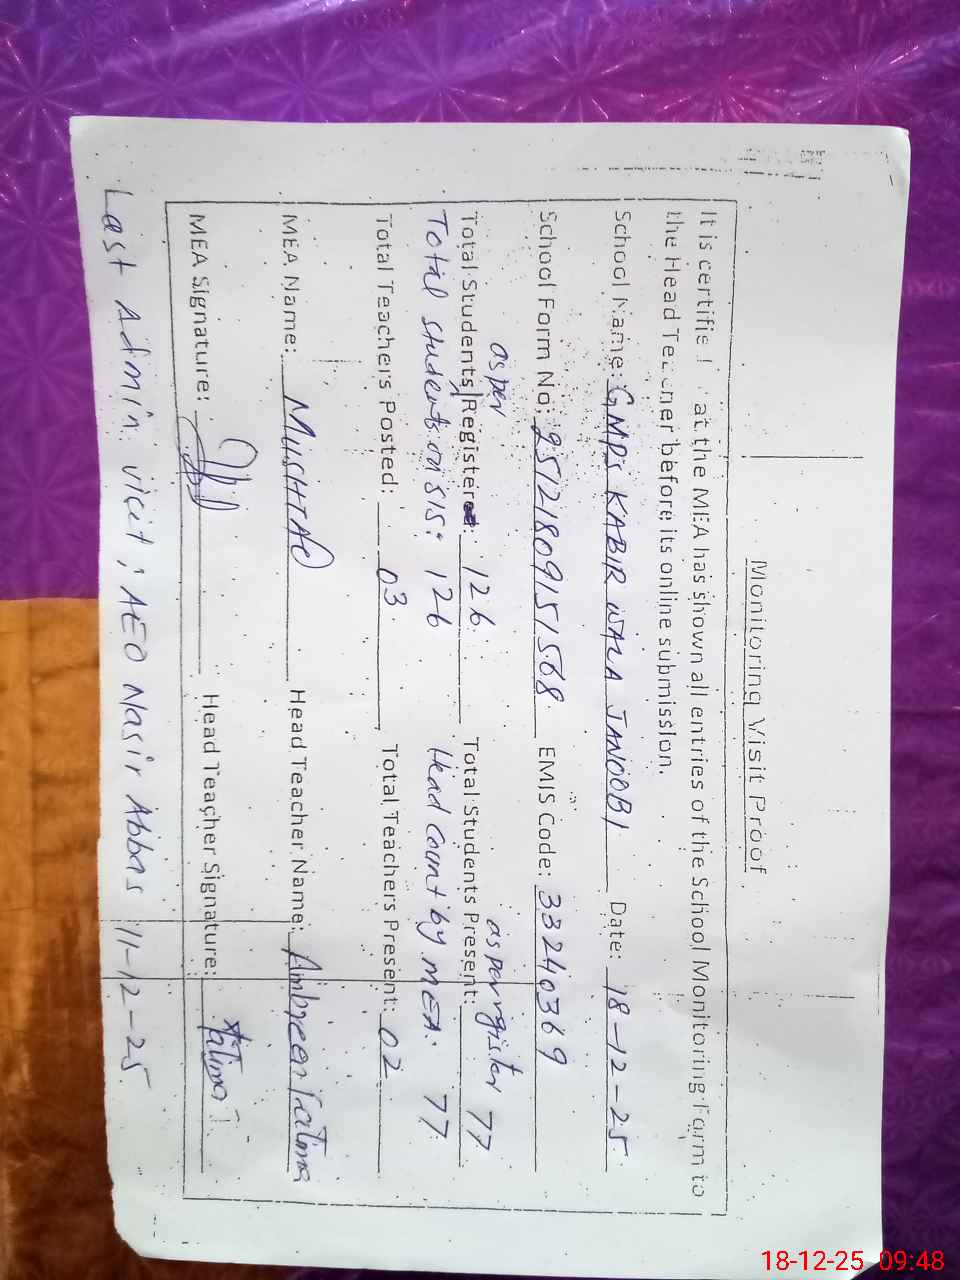 Monitoring Visit Proof
It is certified that the MEA has shown all entries of the School Monitoring Form to
the Head Teacher before its online submission.
School Name: GMPS KABIR WALA JANOOBI Date: 18-12-25
School Form No: 25121809151568 EMIS Code: 33240369
as per as per register
Total Students Registered: 126 Total Students Present: 77
Total students on SIS: 126 Head Count by MEA: 77
Total Teachers Posted: 03 Total Teachers Present: 02
MEA Name: MUSHTAQ Head Teacher Name: Ambreen Fatima
MEA Signature: Head Teacher Signature: Fatima
Last Admin. Vicit; AEO Nasir Abbas 11-12-25
18-12-25 09:48